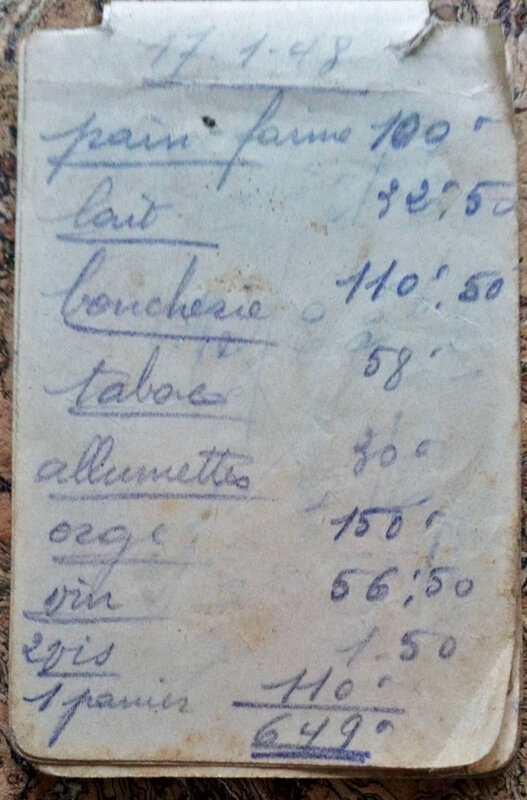 17.1.48
pain farine 100"
lait 32",50
boucherie 110",50
tabac 58"
allumettes 30"
orge 150"
vin 56",50
2 vis 1.50
1 panier 110"
649"